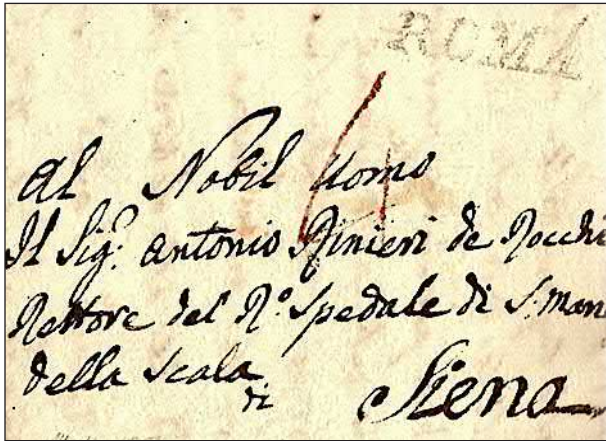 ROMA
4
Al Nobil Uomo
Il Sig.ᵒ Antonio Rinieri de Rocchi
Rettore del R.ᵒ Spedale di S. Mari
della Scala
di Siena